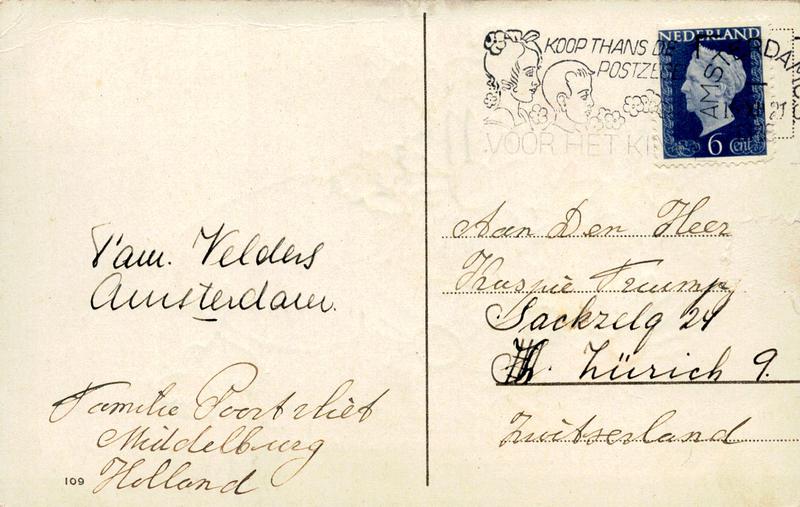 KOOP THANS DE
POSTZEGE
VOOR HET KI
NEDERLAND
AMSTERDAM
6 Cent
Fam. Velders
Amsterdam.
Familie Poortvliet
Middelburg
Holland
109
Aan Den Heer
Trump
Sackzelg 24
Zürich 9.
Zwitserland